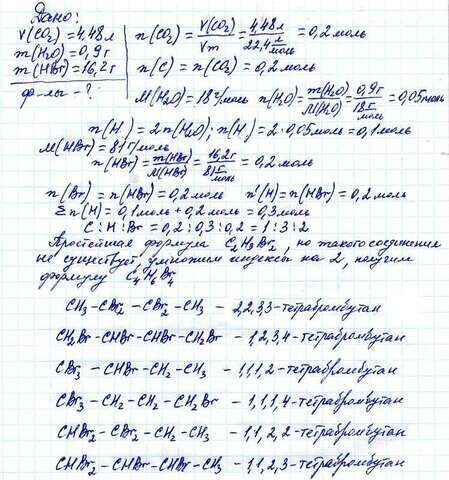 Дано:
V(CO₂)=4,48л
m(H₂O)=0,9г
m(HBr)=16,2г
ф-лы - ?
n(CO₂)=V(CO₂)/Vm=4,48л/22,4 л/моль=0,2 моль
n(C)=n(CO₂)=0,2 моль
M(H₂O)=18 г/моль n(H₂O)=m(H₂O)/M(H₂O)=0,9г/18 г/моль=0,05 моль
n(H)=2n(H₂O); n(H)=2·0,05 моль=0,1 моль
M(HBr)=81 г/моль
n(HBr)=m(HBr)/M(HBr)=16,2г/81 г/моль=0,2 моль
n(Br)=n(HBr)=0,2 моль n'(H)=n(HBr)=0,2 моль
Σn(H)=0,1 моль+0,2 моль=0,3 моль
C:H:Br=0,2:0,3:0,2=1:3:2
Простейшая формула C₂H₃Br₂, но такого соединения
не существует, умножим индексы на 2, получим
формулу C₄H₆Br₄
CH₃-CBr₂-CBr₂-CH₃ - 2,2,3,3-тетрабромбутан
CH₂Br-CHBr-CHBr-CH₂Br - 1,2,3,4-тетрабромбутан
CBr₃-CHBr-CH₂-CH₃ - 1,1,1,2-тетрабромбутан
CBr₃-CH₂-CH₂-CH₂Br - 1,1,1,4-тетрабромбутан
CHBr₂-CBr₂-CH₂-CH₃ - 1,1,2,2-тетрабромбутан
CHBr₂-CHBr-CHBr-CH₃ - 1,1,2,3-тетрабромбутан